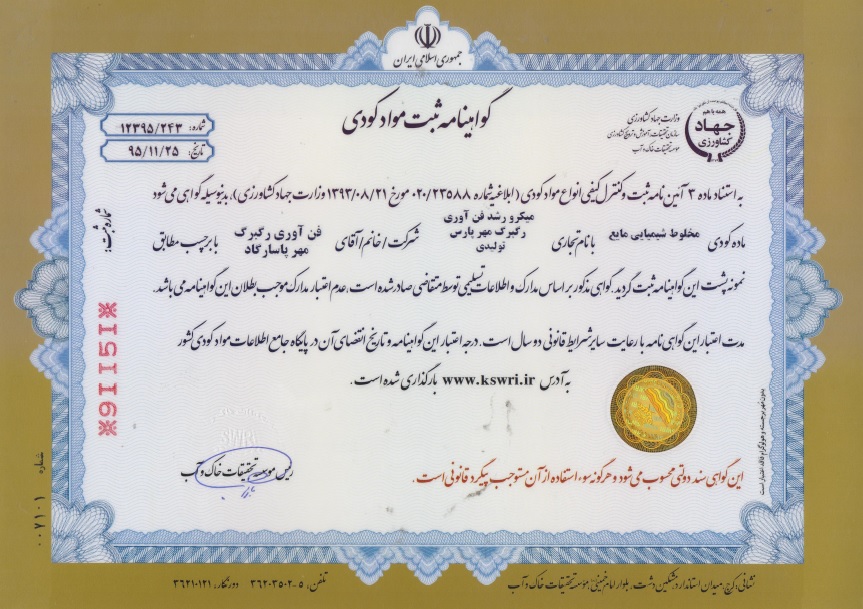 جمهوری اسلامی ایران
گواهینامه ثبت مواد کودی
شماره: ۱۲۳۹۵/۲۴۳
تاریخ: ۹۵/۱۱/۲۵
همه با هم
جهاد
کشاورزی
وزارت جهاد کشاورزی
سازمان تحقیقات، آموزش و ترویج کشاورزی
موسسه تحقیقات خاک و آب
به استناد ماده ۳ آئین نامه ثبت و کنترل کیفی انواع مواد کودی (ابلاغیه شماره ۰۲۰/۲۳۵۸۸ مورخ ۱۳۹۳/۰۸/۲۱ وزارت جهاد کشاورزی)، بدینوسیله گواهی می شود
ماده کودی مخلوط شیمیایی مایع با نام تجاری میکرو رشد فن آوری رگبرگ مهر پارس تولیدی شرکت/خانم/آقای فن آوری رگبرگ مهر پاسارگاد با برچسب مطابق
نمونه پشت این گواهینامه ثبت گردید. گواهی مذکور بر اساس مدارک و اطلاعات تسلیمی توسط متقاضی صادر شده است، عدم اعتبار مدارک موجب بطلان این گواهینامه می باشد.
مدت اعتبار این گواهی نامه با رعایت سایر شرایط قانونی دو سال است. درجه اعتبار این گواهینامه و تاریخ انقضای آن در پایگاه جامع اطلاعات مواد کودی کشور
به آدرس www.kswri.ir بارگذاری شده است.
شماره ثبت:
*91151*
رئیس موسسه تحقیقات خاک و آب
این گواهی سند دولتی محسوب می شود و هرگونه سوء استفاده از آن مستوجب پیگرد قانونی است.
بدون مهر برجسته و هولوگرام فاقد اعتبار است
شماره ۰۰۷۱۰۱
نشانی: کرج، میدان استاندارد، مشکین دشت، بلوار امام خمینی، مؤسسه تحقیقات خاک و آب
تلفن: ۵-۳۶۲۰۳۵۰۲ دورنگار: ۳۶۲۱۰۱۲۱